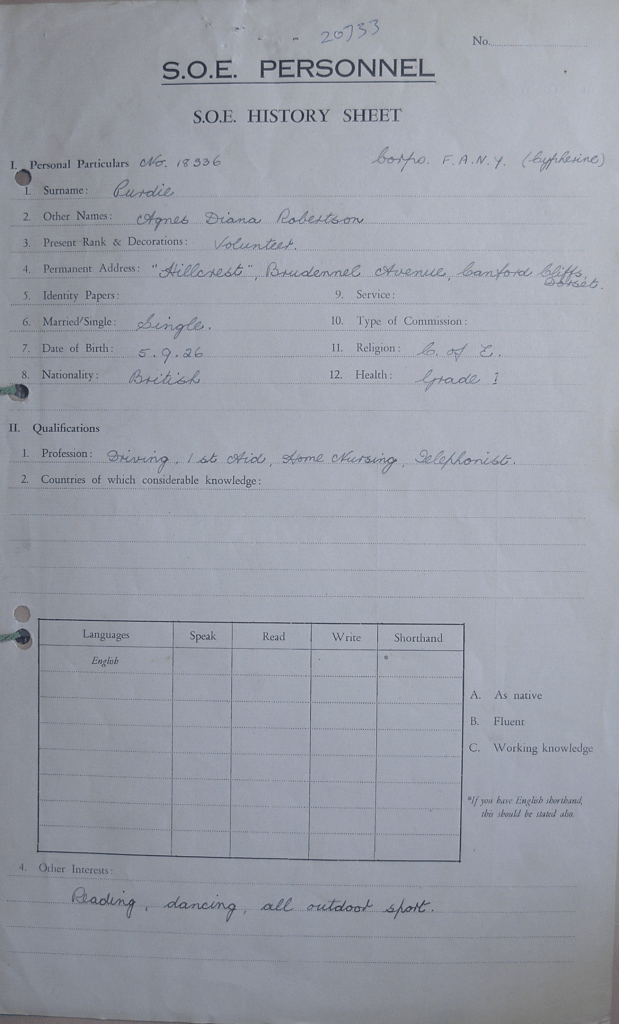 20733
No.
S.O.E. PERSONNEL
S.O.E. HISTORY SHEET
I. Personal Particulars No. 18336 Corps. F.A.N.Y. (Cypherine)
1. Surname: Purdie
2. Other Names: Agnes Diana Robertson
3. Present Rank & Decorations: Volunteer.
4. Permanent Address: "Hillcrest", Brudennel Avenue, Canford Cliffs, Dorset.
5. Identity Papers: 9. Service:
6. Married/Single: Single. 10. Type of Commission:
7. Date of Birth: 5.9.26 11. Religion: C. of E.
8. Nationality: British 12. Health: Grade I
II. Qualifications
1. Profession: Driving, 1st Aid, Home Nursing, Telephonist.
2. Countries of which considerable knowledge:
Languages Speak Read Write Shorthand
English *
A. As native
B. Fluent
C. Working knowledge
*If you have English shorthand,
this should be stated also.
4. Other Interests:
Reading, dancing, all outdoor sport.